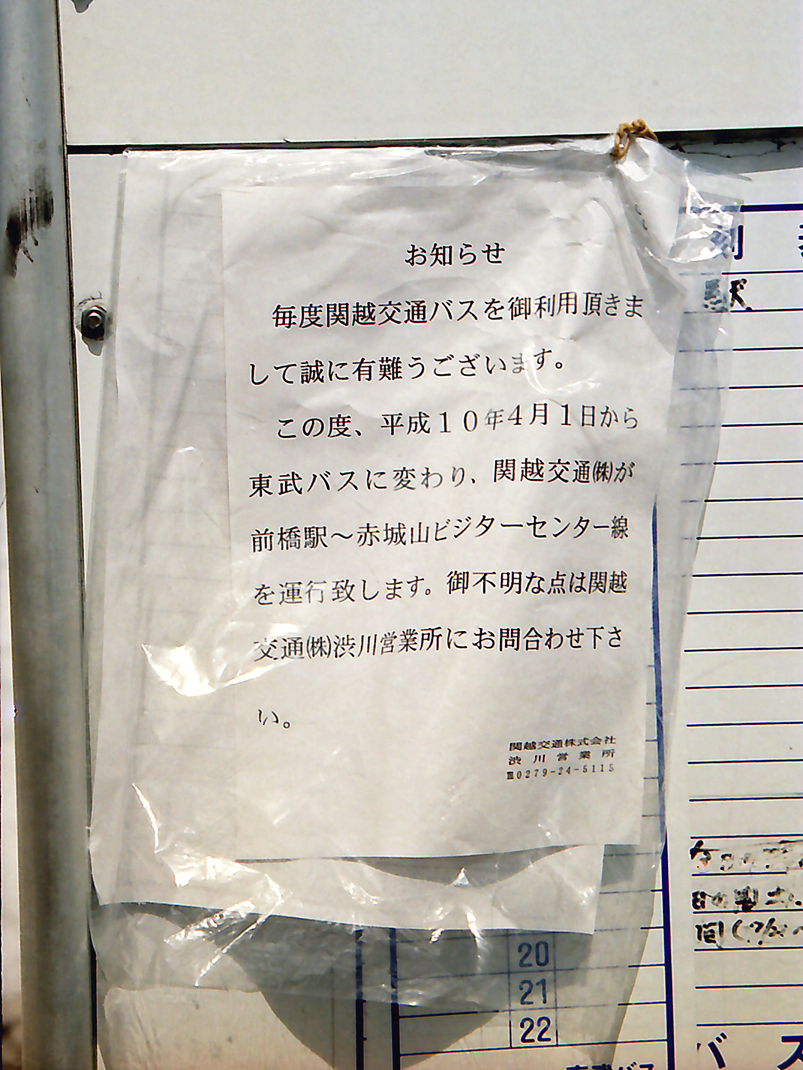 お知らせ
毎度関越交通バスを御利用頂きま
して誠に有難うございます。
この度、平成１０年４月１日から
東武バスに変わり、関越交通㈱が
前橋駅～赤城山ビジターセンター線
を運行致します。御不明な点は関越
交通㈱渋川営業所にお問合わせ下さ
い。
関越交通株式会社
渋川営業所
℡0279-24-5115
刻
駅
20
21
22
東武バス
バス